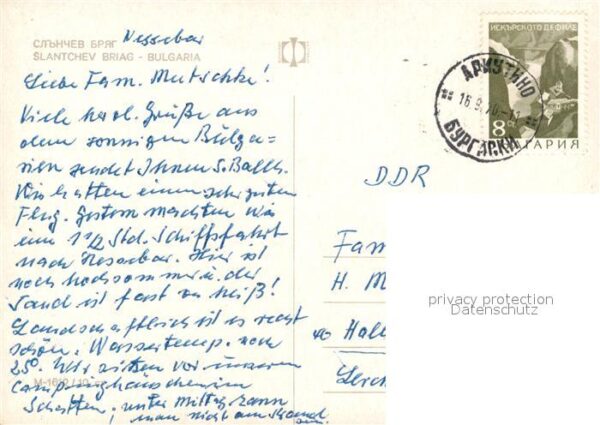 Nessebar
СЛЪНЧЕВ БРЯГ
SLANTCHEV BRIAG - BULGARIA
Liebe Fam. Mutschke!
Viele herzl. Grüße aus
dem sonnigen Bulga-
rien sendet Ihnen S. Balth.
Wir hatten einen sehr guten
Flug. Gestern machten wir
eine 1 1/2 Std. Schiffsfahrt
nach Nessebar. Hier ist
noch hochsommer u. der
Sand ist fast zu heiß!
Landschaftlich ist es recht
schön. Wassertemp. noch
25°. Wir sitzen vor unserem
campinghäuschen im
Schatten, unter Mittag kann
man nicht am Strand
sein.
М-1612/10
ИСКЪРСКОТО ДЕФИЛЕ
8
БЪЛГАРИЯ
АРКУТИНО
16.9.70-1
БУРГАСКИ
DDR
Fam
H. M
40 Hall
Lerch
privacy protection
Datenschutz